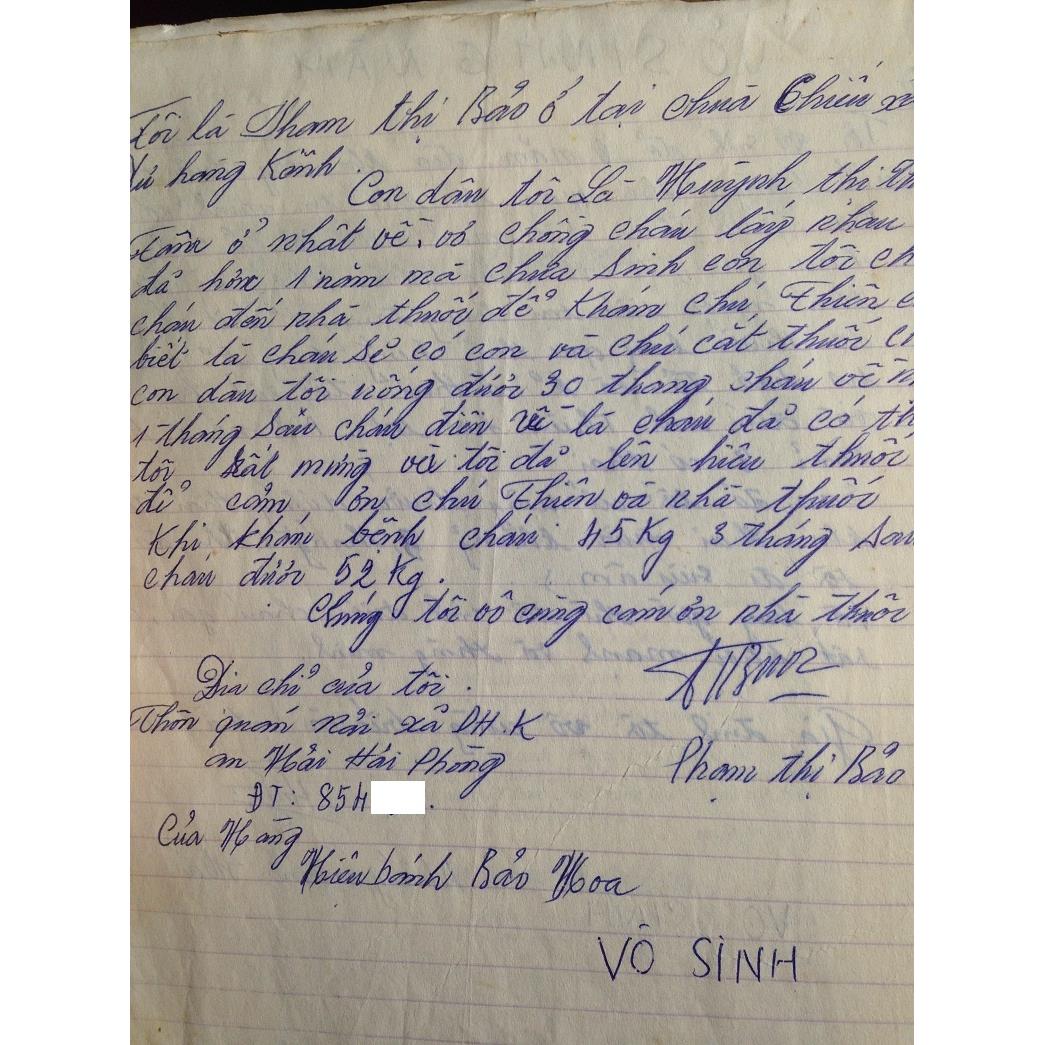 Tôi là Phạm thị Bảo ở tại chùa Chiếu xã
Dư hàng Kênh.
Con dâu tôi Là Huỳnh thị Th
Tâm ở nhật về, vợ chồng cháu lấy nhau
đả hơn 1 năm mà chưa sinh con tôi ch
cháu đến nhà thuốc để khám chú Thiên c
biết là cháu sẻ có con và chú cắt thuốc ch
con dâu tôi uống được 30 thang cháu về n
1 tháng sau cháu điện về là cháu đả có th
tôi rất mừng và tôi đả lên hiệu thuốc
để cảm ơn chú Thiên và nhà thuốc
Khi khám bệnh cháu 45 Kg 3 tháng sau
cháu được 52 Kg.
Chúng tôi vô cùng cám ơn nhà thuốc
Địa chỉ của tôi.
Thôn quán nải xã DH.K
an Hải Hải Phòng
Phạm thị Bảo
ĐT: 854
Cửa Hàng
Hiệu bánh Bảo Hoa
VÔ SINH